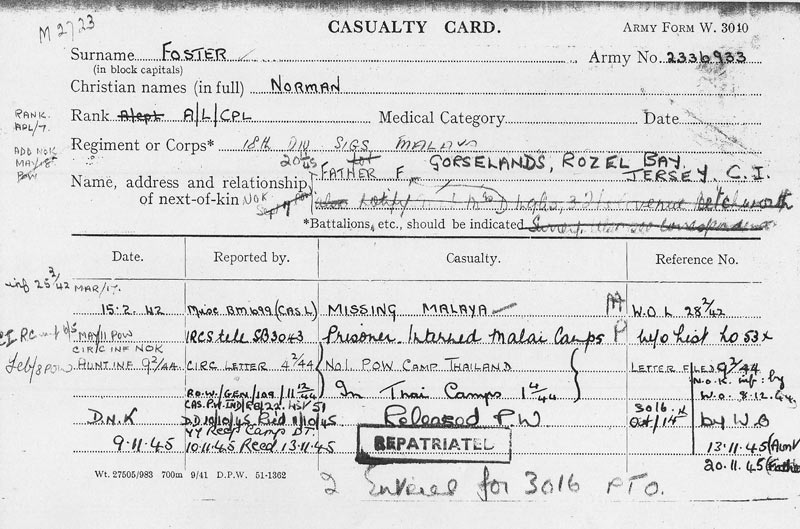 M 2723
CASUALTY CARD.
ARMY FORM W. 3040
Surname FOSTER
Army No. 2336933
(in block capitals)
Christian names (in full) NORMAN
RANK.
APL/7.
Rank A/L/CPL
Medical Category
Date
Regiment or Corps* 18th DIV SIGS MALAYA
ADD NOK
MAY/8
POW
20/45
FATHER F. GORSELANDS, ROZEL BAY.
JERSEY, C.I.
Name, address and relationship
of next-of-kin NOK
*Battalions, etc., should be indicated
Date.
Reported by.
Casualty.
Reference No.
inf 25 3/42 MAR/17.
15.2.42
Misc BM1699 (CAS L)
MISSING MALAYA
W.O.L 28 2/42
MAY/11 POW
IRCS tele SB3043
Prisoner. Interned Malai Camps P
w/o list no 53x
CIRC INF NOK
Feb/8 POW
AUNT INF 9 2/44
CIRC LETTER 4 2/44
No1 POW CAMP THAILAND
LETTER FILED 9 2/44
N.O.K. inf: by
W.O. 8.12.44
R.O.W/GEN/109/11 12/44
In Thai Camps 1 4/44
CAS.P.W.IND/RB/22. list 51
D.N.K
D.D 10/10/45 Recd 11/10/45
Released P.W
3016.x
Oct/15
by W.O
YY Recp Camp
9.11.45
10.11.45 Recd 13.11.45
REPATRIATED
13.11.45 (Aunt
20.11.45 (Father
Wt. 27505/983 700m 9/41 D.P.W. 51-1362
2 Entries for 3016 PTO.